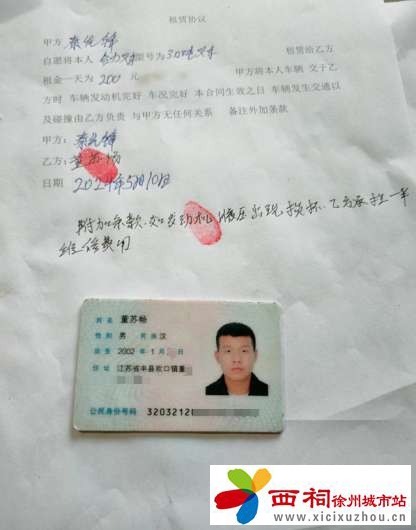 租赁协议
甲方
自愿将本人 合力叉车 型号为3.0吨叉车 租赁给乙方
租金一天为 200 元 甲方将本人车辆 交于乙
方时 车辆发动机完好 车况完好 本合同生效之日 车辆发生交通以
及碰撞由乙方负责 与甲方无任何关系 备注外加条款
甲方:
乙方: 董苏畅
日期 2024年5月10日
附加条款:如发动机 液压出现损坏、乙方承担一半
维修费用
姓名 董苏畅
性别 男 民族 汉
出生 2002 年 1 月
住址 江苏省丰县欢口镇董
公民身份号码 3203212
西祠徐州城市站
www.xicixuzhou.cn